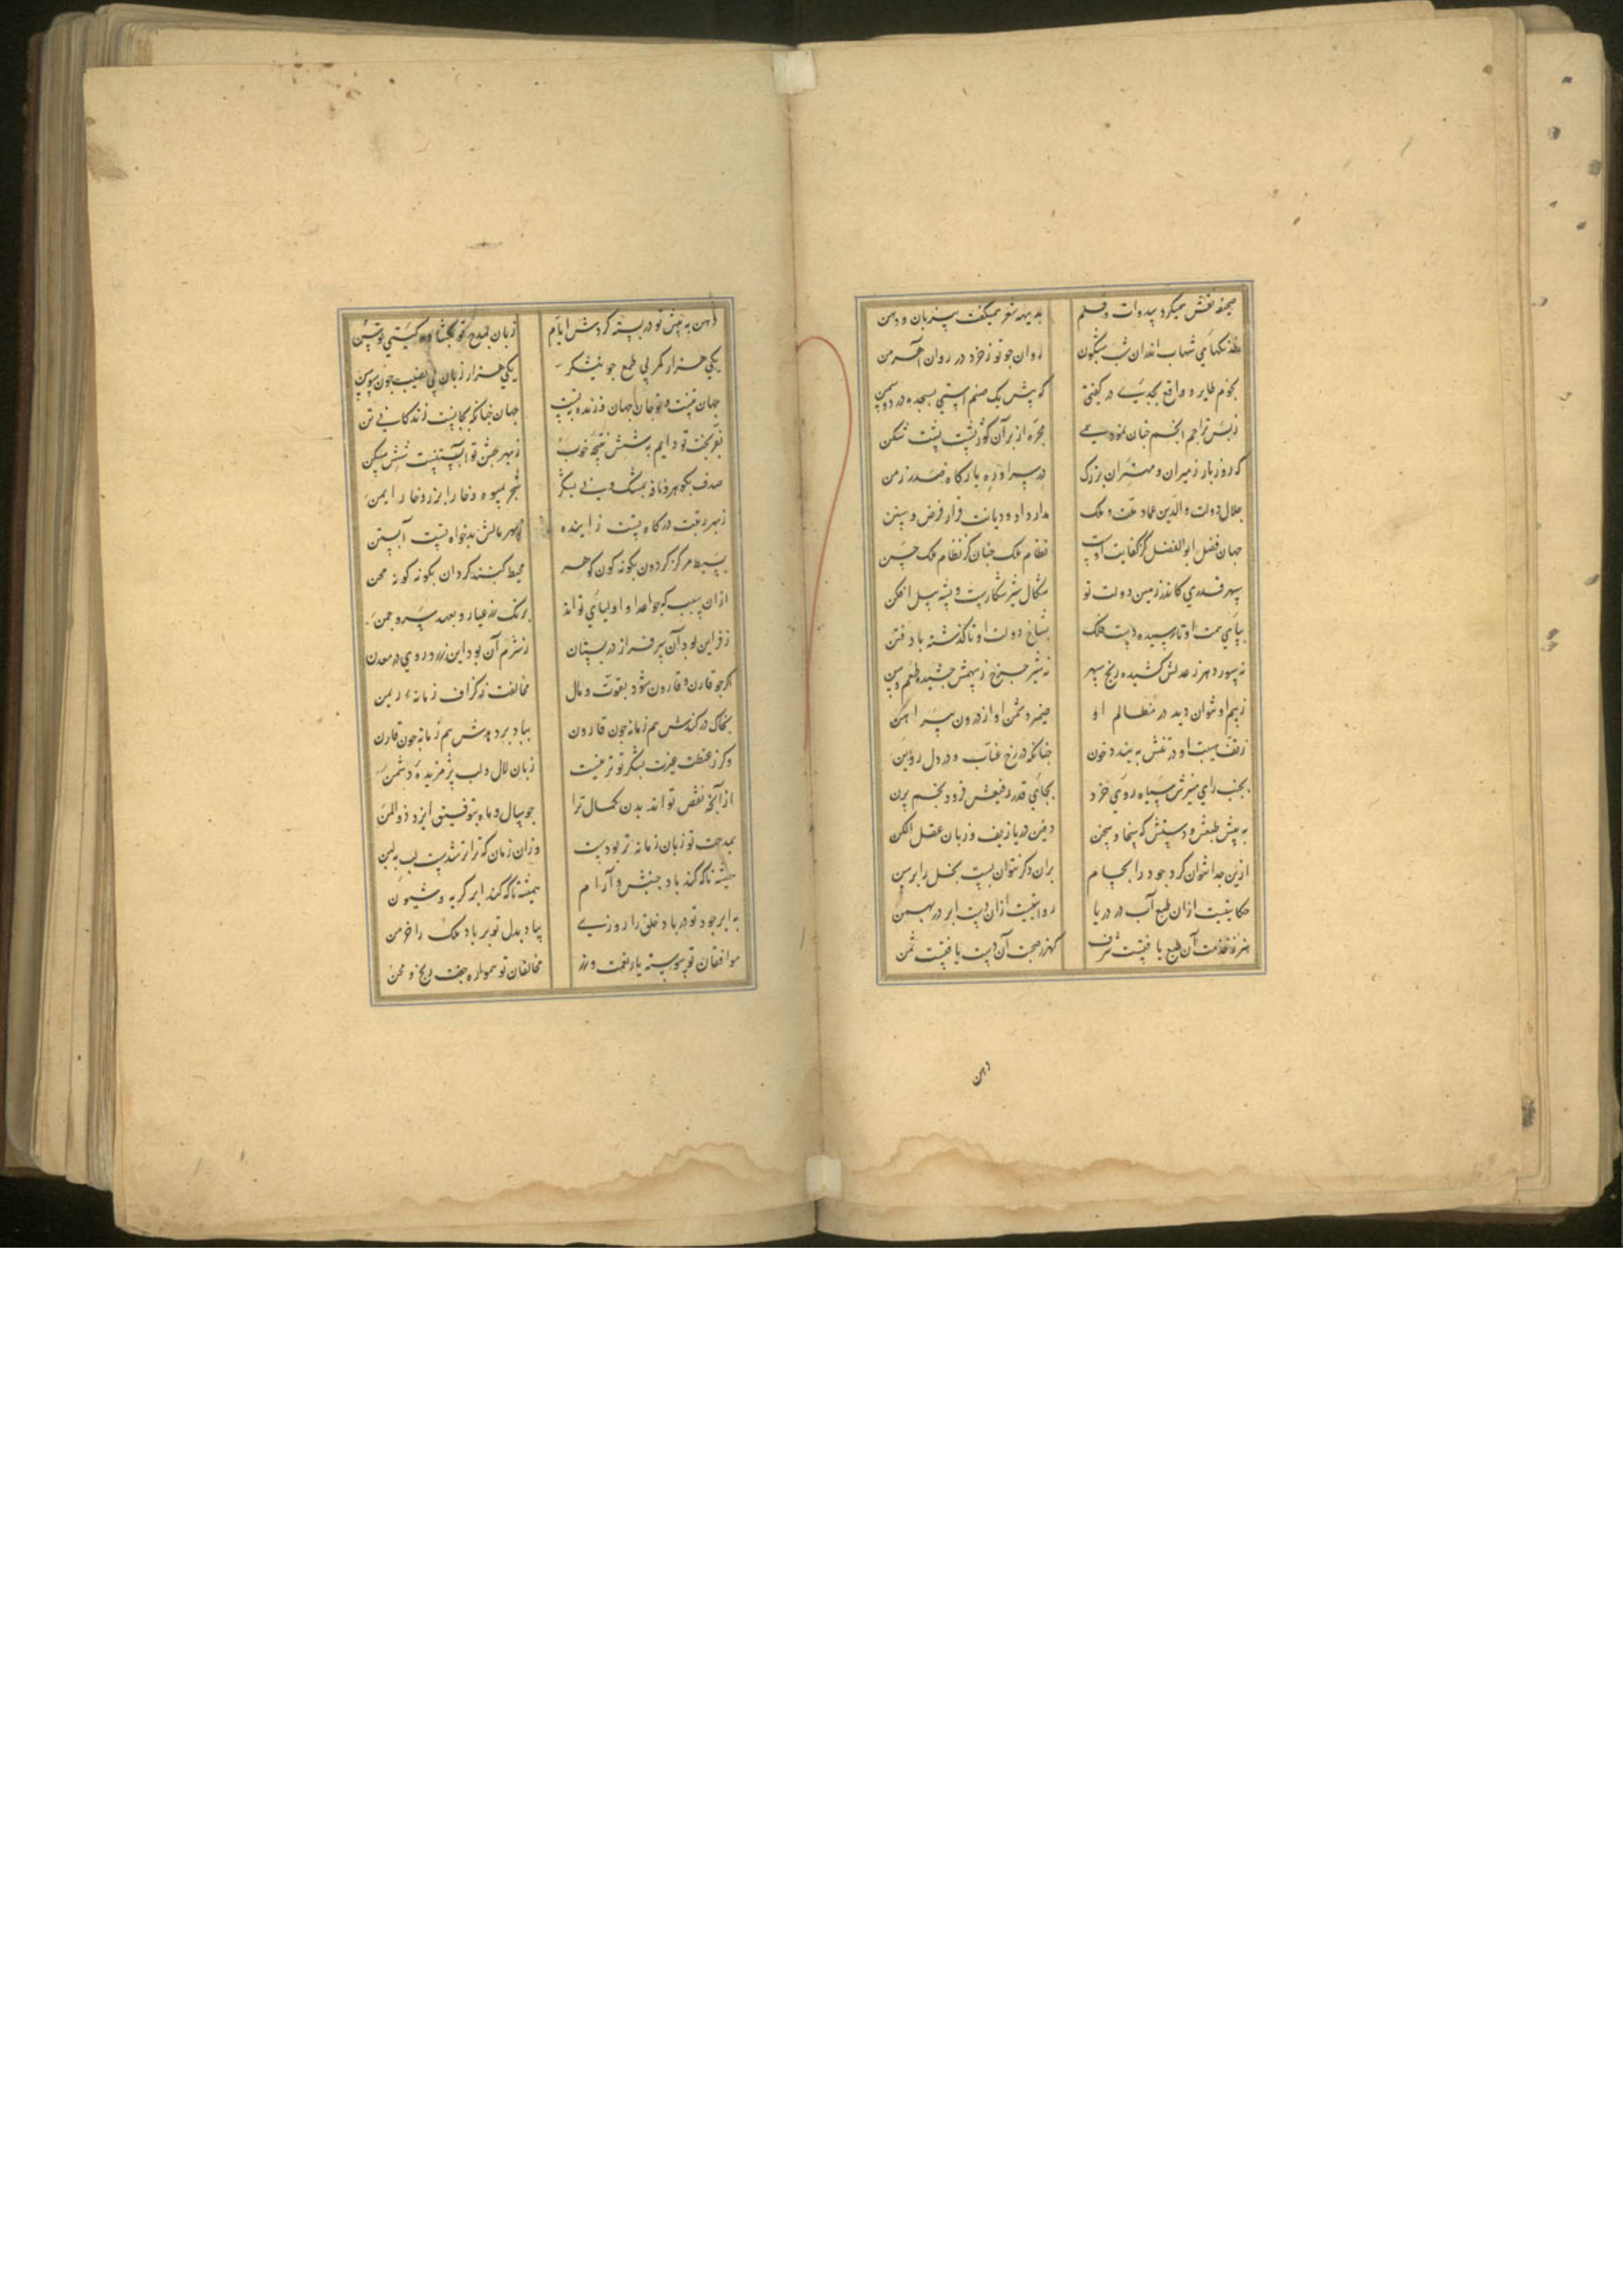 صحیفه نقش همیکرد بی دوات و قلم بدیهه شعر همیکفت بی زبان و دهن
خدنکهای شهاب اندران شب شبکون روان جو نور خرد در روان اهرمن
نجوم طایر و واقع بجدیی در کفتی که پیش یک صنم استی بسجده در دو شمن
ز بس تراجم انجم جنان نمود همی مجره از بر آن کوز پشت پشت شکن
که روز بار ز میران و مهتران بزرک در سرا و ره بارکاه صدر زمن
جلال دولت و الدین عماد ملت و ملک مدار داد و دیانت قرار فرض و سنن
جهان فضل ابو الفضل کز کفایت اوست نظام ملک جنان کز نظام ملک حسن
سپهر قدری کاندر زمین دولت تو شکال شیر شکارست و پشه پیل افکن
بپای همت او نارسیده دست فلک بشاخ دولت او ناکذشته باد فتن
نه سور دهر ز عدلش کشیده رنج سهر نه شیر جرخ ز سهمش جشیده طعم وسن
ز بیم او نتوان دید در مظالم او ضمیر دشمن او از درون پیراهن
ز تف هیبت او در تنش ببندد خون جنانکه در رخ عناب و در دل روین
بجنب رای منیرش سیاه روی خرد بجای قدر رفیعش فرود نجم پرن
به پیش طبعش و دستش که سخا و سخن دفین دریا زیف و زبان عقل الکن
ازین جدا نتوان کرد جود را بحسام بران دکر نتوان بست بخل را برسن
حکایتیست ازان طبع آب در دریا روایتیست ازان دست ابر در بهمن
هنر ز خدمت آن طبع یافتست شرف کهر ز صحبت آن دست یافتست ثمن
دهن
دهن به پیش تو در بسته کردش ایام زبان بمدح تو بکشاده کیتی توسن
یکی هزار کمر بی طمع جو نیشکر یکی هزار زبان بی نصیب جون سوسن
جهان تنیست و تو جان جهان و زنده بتست جهان جنانکه بجانست زندکانی تن
ز بهر عیش تو آبستنیست شش مسکن
صدف بکوهر و نافه بمشک و نی بشکر شجر بمیوه و خارا بزر و خار ایمن
ز بهر زینت درکاه تست زاینده ز بهر مالش بدخواه تست آبستن
بسیط مرکز کردون بکونه کون کوهر محیط کنبد کردان بکونه کونه محن
ازان سبب که جو اعدا و اولیای تواند برنک زر عیار و بعهد سرو جمن
ز فر این بود آن سر فراز در بستان ز شرم آن بود این زرد روی در معدن
اکر جو قارن و قارون شود بقوت و مال مخالفت ز کزاف زمانه ریمن
بخاک درکندش هم زمانه جون قارون بباد بردهدش هم زمانه جون قارن
زبان لال و لب پژمریده دشمن
از آنکه نقص تواند بدن کمال ترا جو سال و ماه بتوفیق ایزد ذو المن
بمدحت تو زبان زمانه تر بودست وزان زمان که ترا تر شدست لب به لبن
همیشه تا که کند باد جنبش و آرام همیشه تا که کند ابر کریه و شیون
به ابر جود تو در باد خلق را روزی بباد بذل تو بر باد ملک را خرمن
موافقان تو پیوسته یار نعمت و ناز مخالفان تو همواره جفت رنج و محن